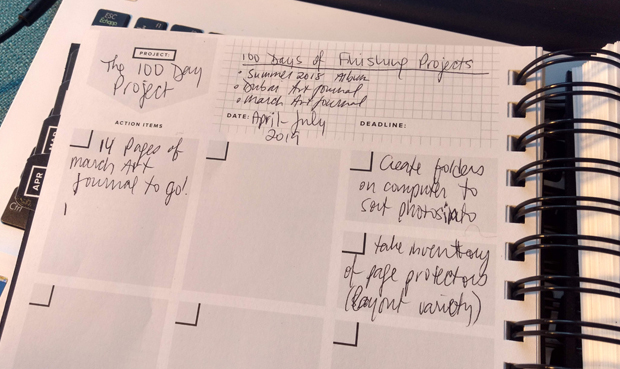 PROJECT:
The 100 Day
Project
100 Days of Finishing Projects
• Summer 2018 Album
• Dubai Art Journal
• March Art Journal
DATE: April-July
2019
DEADLINE:
ACTION ITEMS
14 Pages of
March Art
Journal to go!
Create folders
on computer to
sort photos into
take inventory
of page protectors
(layout variety)
APR
ESC